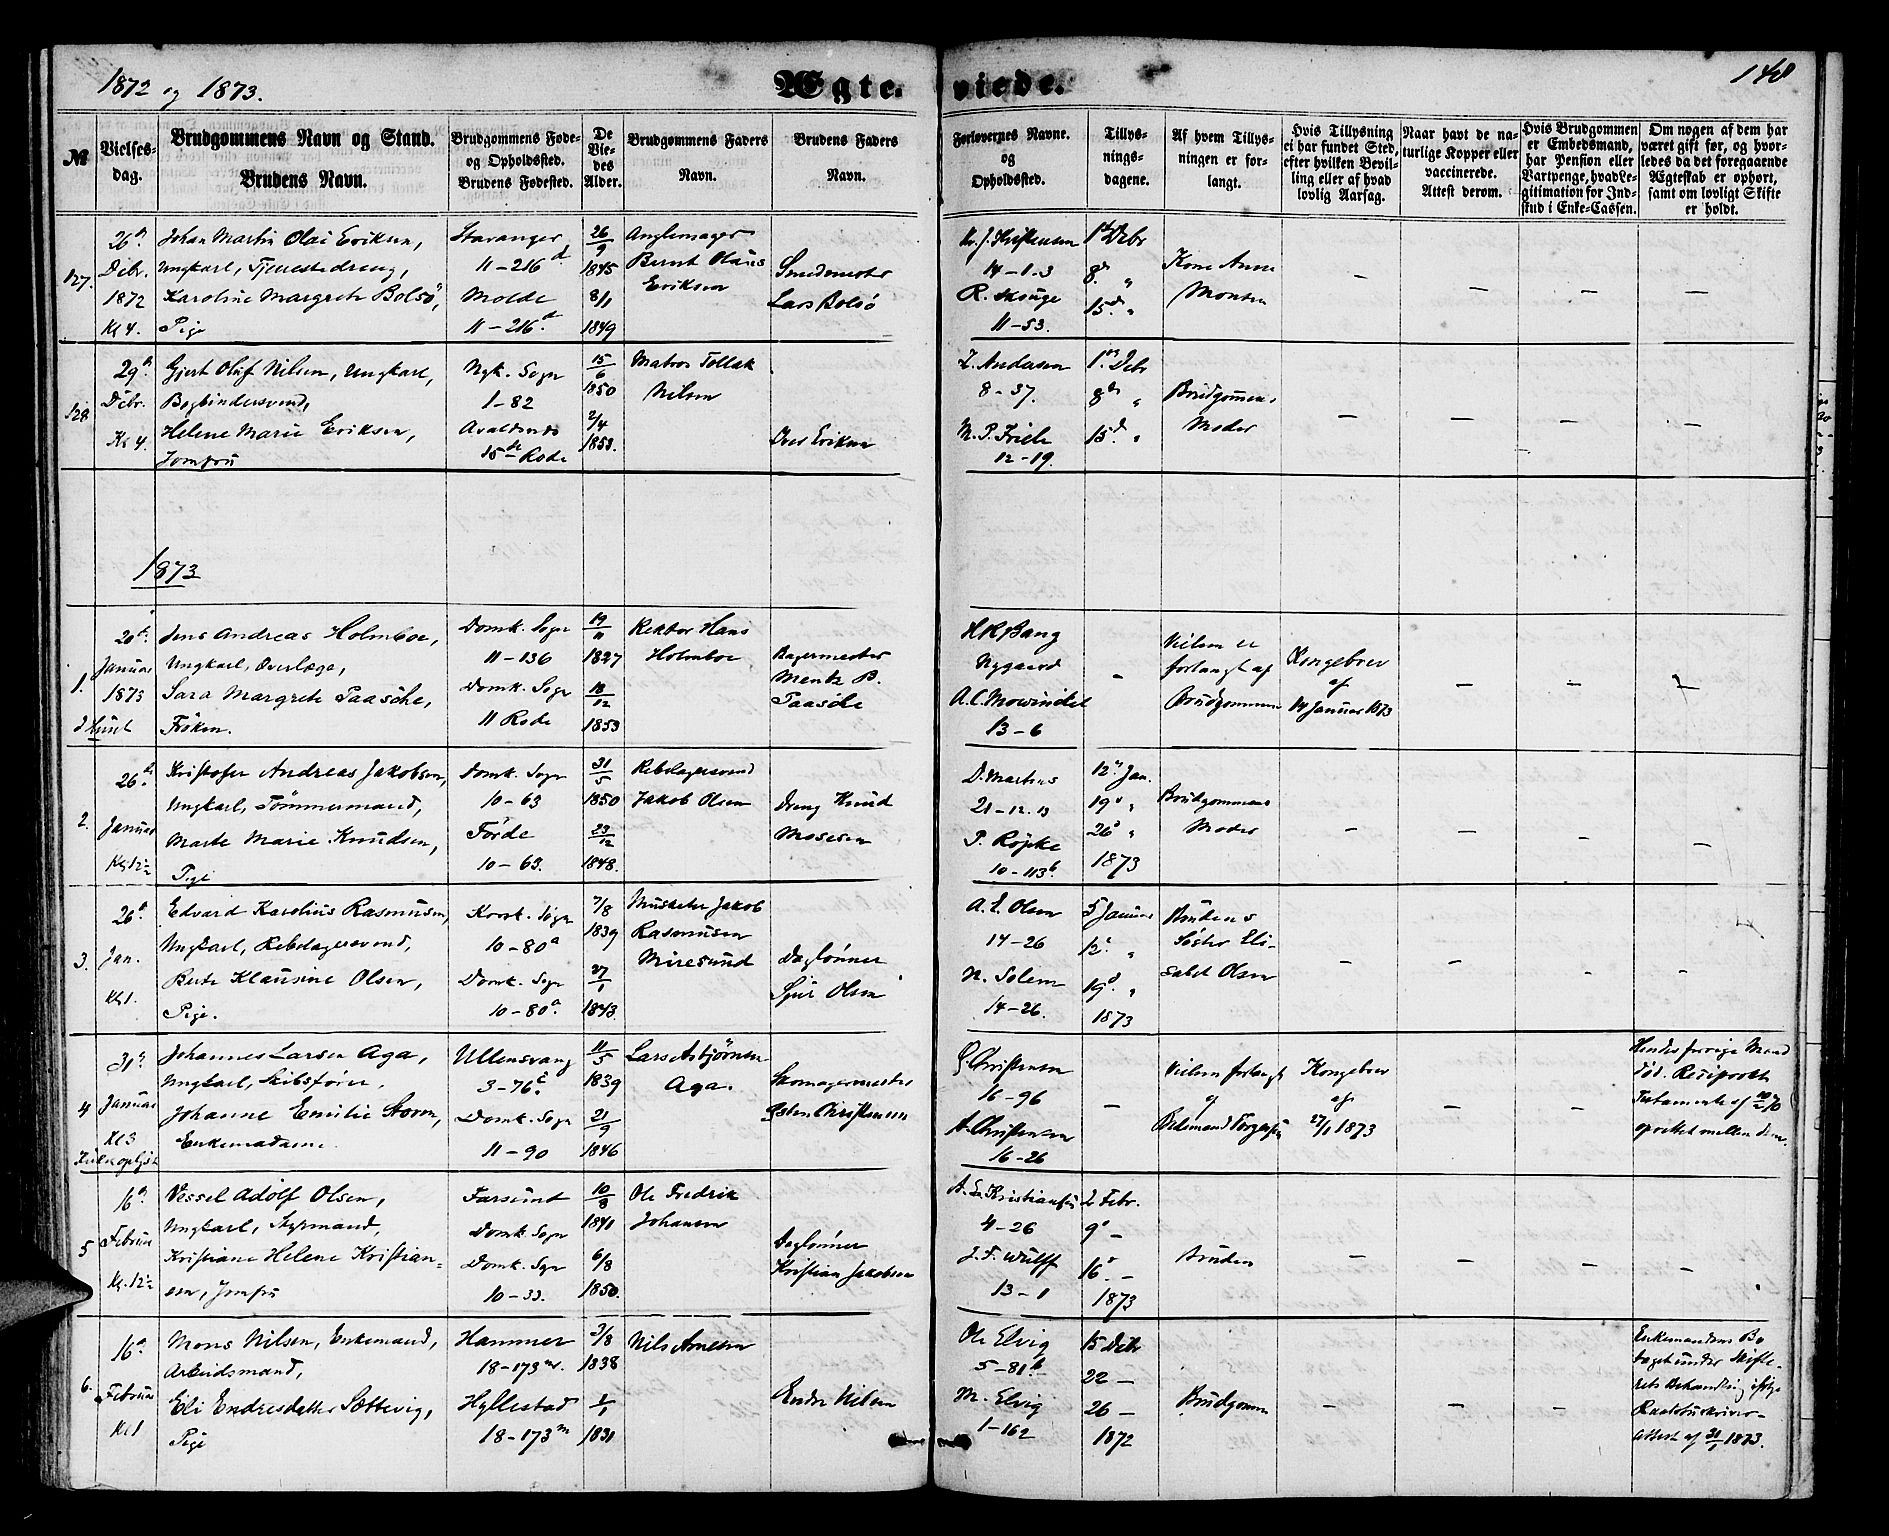 1872 og 1873.
Ægte-viede.
148
№
Vielses-dag.
Brudgommens Navn og Stand.
Brudens Navn.
Brudgommens Føde- og Opholdssted.
Brudens Fødested.
De Viedes Alder.
Brudgommens Faders Navn.
Brudens Faders Navn.
Forlovernes Navne. og Opholdssted.
Tillysningsdagene.
Af hvem Tillysningen er forlangt.
Hvis Tillysning ei har fundet Sted, efter hvilken Bevilling eller af hvad lovlig Aarsag.
Naar havt de naturlige Kopper eller vaccinerede. Attest derom.
Hvis Brudgommen er Embedsmand, har Pension eller Vartpenge, hvad Legitimation for Indskud i Enke-Cassen.
Om nogen af dem har været gift før, og hvorledes da det foregaaende Ægteskab er ophørt, samt om lovligt Skifte er holdt.
127.
26d. Debr. 1872 Kl 4.
Johan Martin Olai Eriksen,
Ungkarl, Tjenestedreng,
Karoline Margrete Bolsö,
Pige
Stavanger
11-216d
Molde
11-216d
26/9 1845
8/1 1849
Anglemager
Bernt Olaus
Eriksen
Smedmester
Lars Bolsö
14-1-3
R. Skouge
11-53.
1st Debr
8de "
15d "
Kone Anne
Monsen
- - - -
128
29d. Debr. Kl 4.
Gjert Oluf Nilsen, Ungkarl,
Bogbindersvend,
Helene Marie Eriksen,
Jomfru
Nyk. Sogn
1-82
Avaldsnes
15de Rode
15/6 1850
2/4 1853.
Matros Tollak
Nilsen
Iver Eriksen
Z. Andersen
8-37.
M. P. Friele
12-19.
1st Debr
8de "
15d "
Brudgommens
Moder
- - - -
1873
1.
20d. Januar 1873 i Huset
Jens Andreas Holmboe,
Ungkarl, Overlæge,
Sara Margrete Paasche,
Fröken.
Domk. Sogn
11-136
Domk. Sogn
11 Rode
19/11 1827
18/12 1853
Rektor Hans
Holmboe
Bagermester
Mentz B.
Paasche
H R Bang
Nygaard
A. C. Mowinckel
13-6
-
Vielsen er
forlangt af
Brudgommen
Kongebrev
af
14 Januar 1873
- - -
2.
26d Januar Kl 12½
Kristofer Andreas Jakobsen,
Ungkarl, Tömmermand,
Marte Marie Knudsen,
Pige
Domk. Sogn
10-63
Förde
10-63.
31/5 1850
23/12 1848.
Rebslagersvend
Jakob Olsen
Dreng Knud
Mosesen
D. Martens
21-12.13
P. Röpke
10-113b.
12d Jan.
19d "
26d "
1873
Brudgommens
Moder
- - - -
3.
26d Jan. Kl 1.
Edvard Karolius Rasmusen,
Ungkarl, Rebslagersvend,
Berte Klausine Olsen,
Pige.
Korsk. Sogn
10-80a
Domk. Sogn
10-80a.
7/8 1839
27/1 1843.
Musketer Jakob
Rasmusen
Miresund
Daglönner
Sjur Olsen
A. E. Olsen
14-26
N. Solem
14-26.
5 Januar
12d "
19d "
1873
Brudens
Söster Eli-
sabet Olsen
- - - -
4
31d Januar Kl 3
Johannes Larsen Aga,
Ungkarl, Skibsförer.
Johanne Emilie Storm,
Enkemadame.
Ullensvang
3-76c
Domk. Sogn
11-90
11/5 1839
21/9 1846
Lars Asbjörnsen
Aga.
Skomagermester
Esten Christensen
G. Christensen
16-96
A. Christensen
16-26
-
Vielsen forlangt
af
Kongebrev
af
27/1 1873
- -
Hendes forrige Mand
död. Reciprokt
Testamente af
oprettet mellem dem.
5
16d. Februar Kl. 12½
Vessel Adolf Olsen,
Ungkarl, Styrmand,
Kristiane Helene Kristian-
sen, Jomfru
Farsund
Domk. Sogn
Domk. Sogn
10-33.
10/8 1841
6/8 1850.
Ole Fredrik
Johansen
Daglönner
Kristian Jakobsen
4-26
J. F. Wulff
13-1
2 Febr.
9d -
16d -
1873
Bruden
- - - -
6.
16d Februar Kl 1
Mons Nilsen, Enkemand,
Arbeidsmand,
Eli Endresdatter Sættevig,
Pige
Hammer
18-173m.
Hyllestad
18-173m
3/8 1838
1/1 1831
Nils Arnesen
Endre Nilsen
Ole Elvig
5-81b
M. Elvig
1-162
15 Debr
22 -
26 -
1872
Brudgommen
- - -
Enkemandens Bo
taget under Skifte-
rets Behandling ifölge
Raadstuskriver-
attest af 31/1 1873.